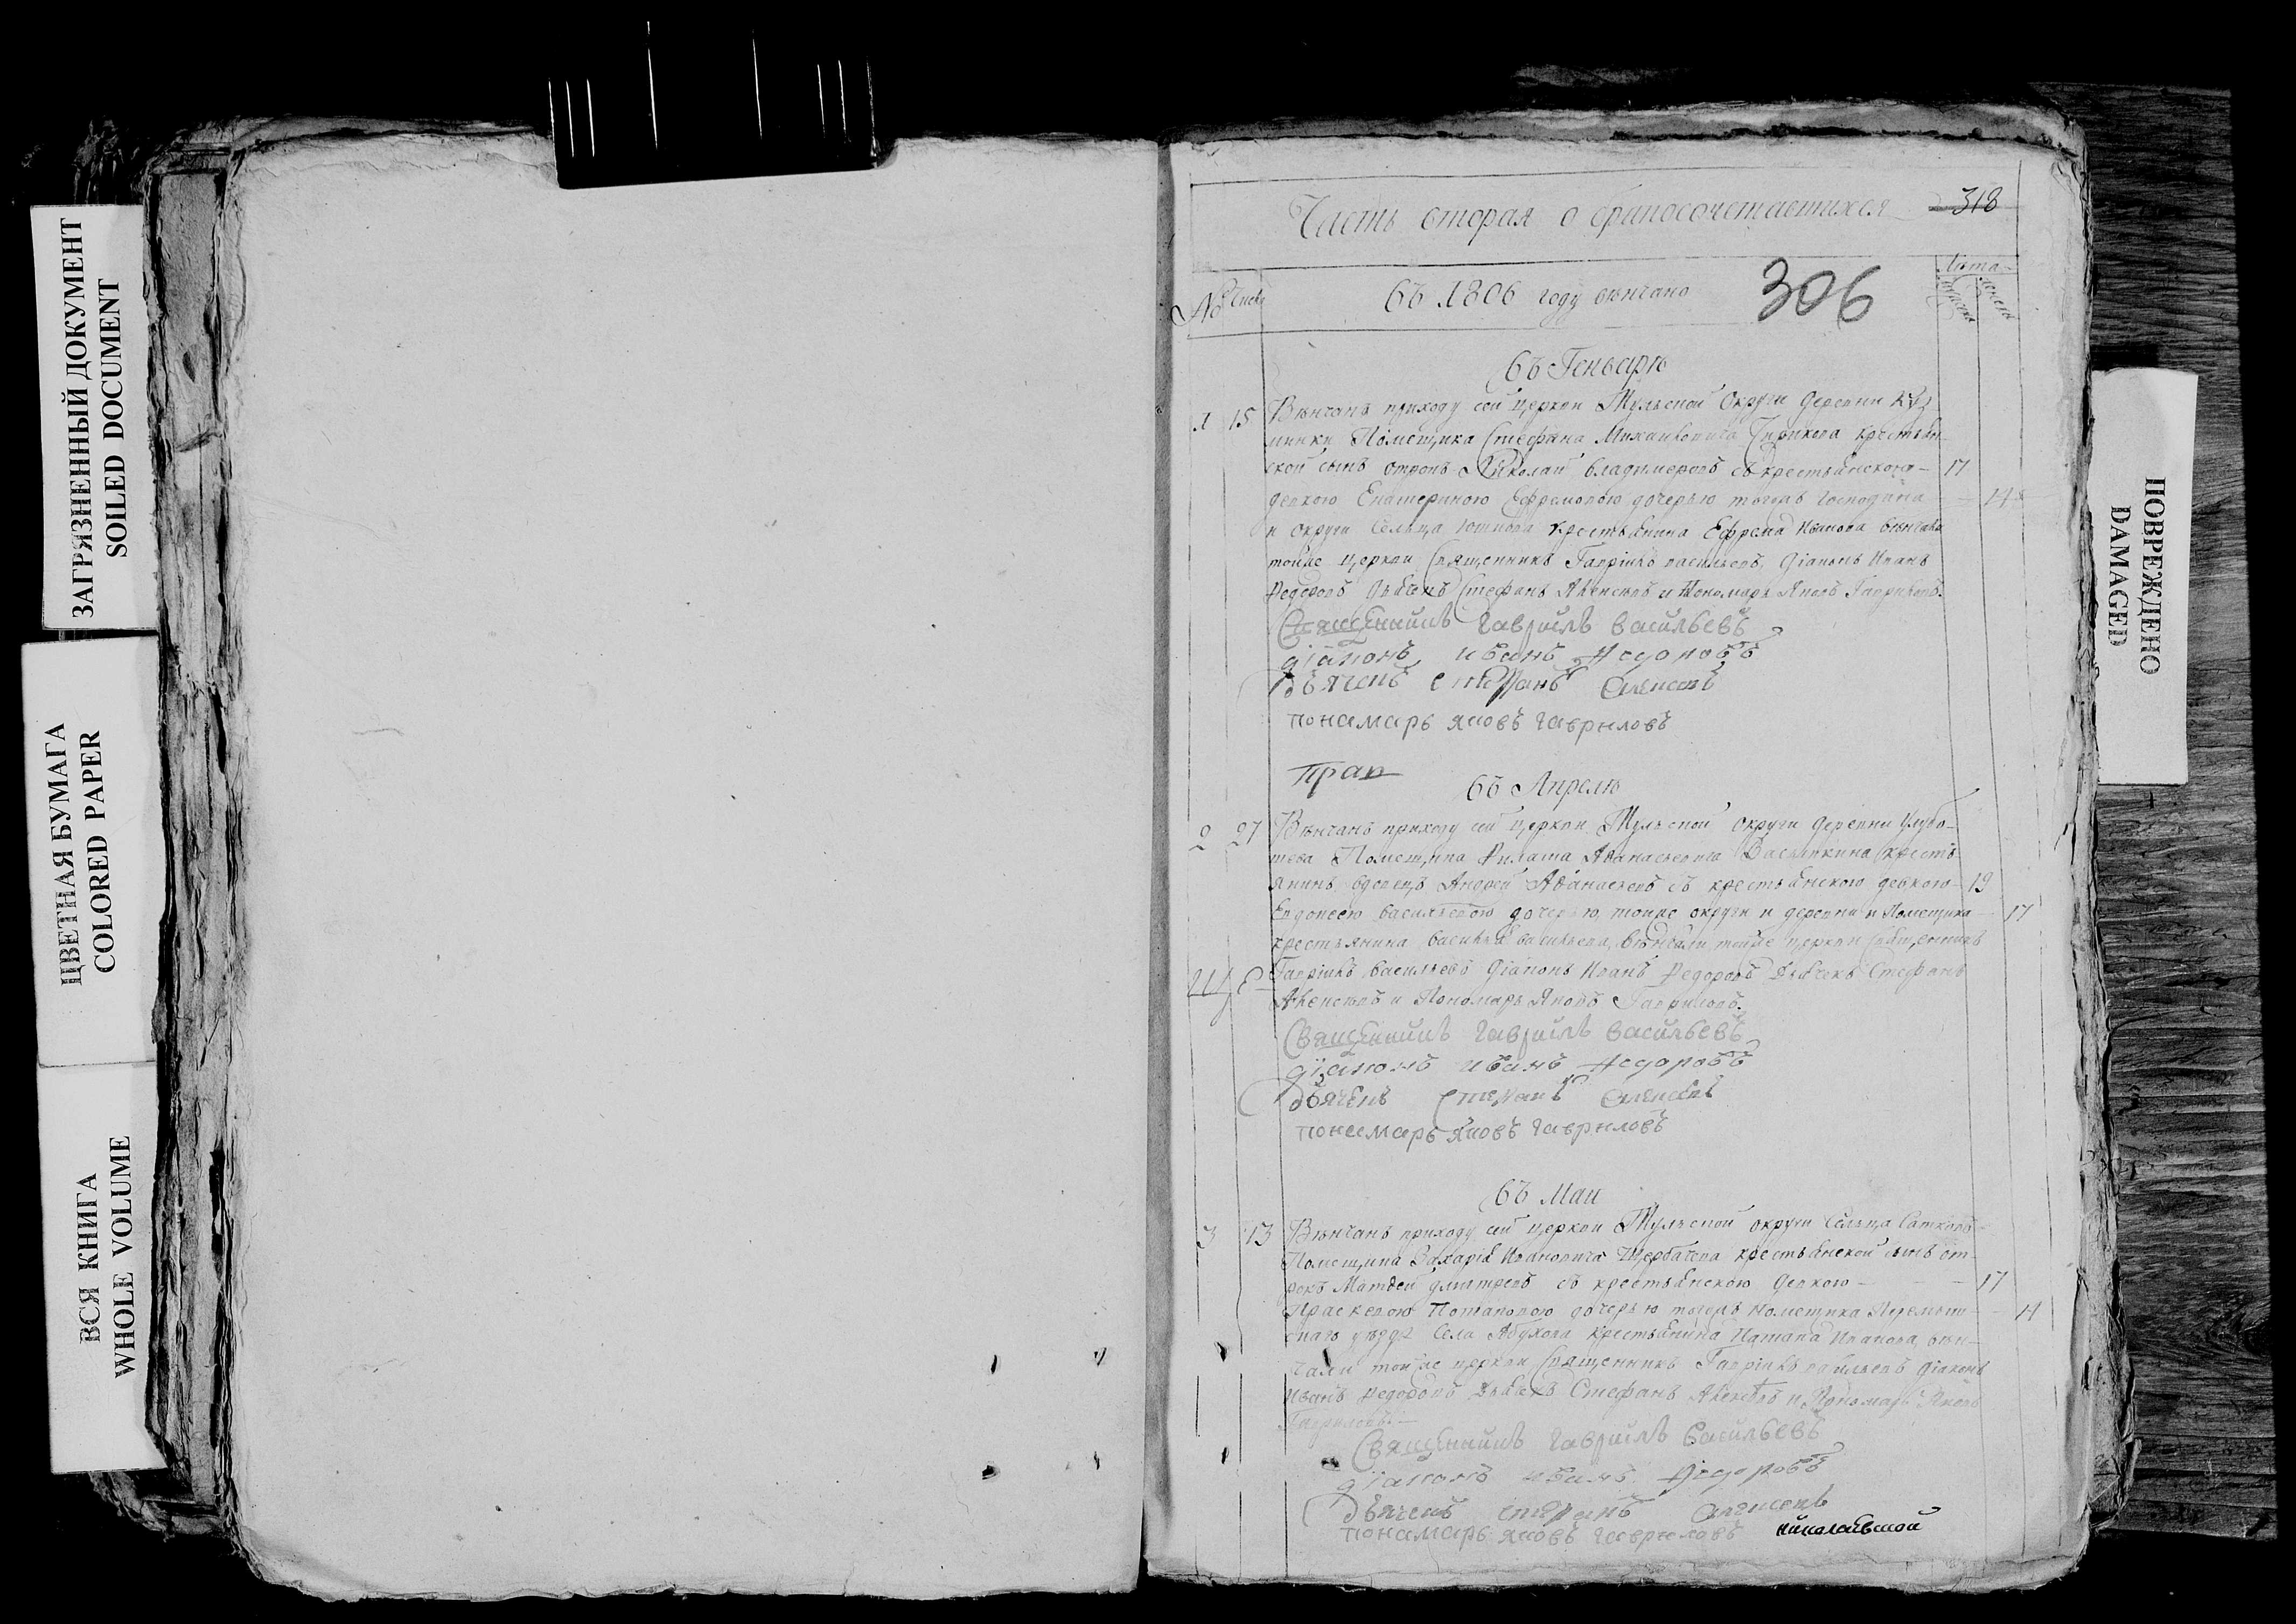 ЗАГРЯЗНЕННЫЙ ДОКУМЕНТ
SOILED DOCUMENT
ЦВЕТНАЯ БУМАГА
COLORED PAPER
ВСЯ КНИГА
WHOLE VOLUME
ПОВРЕЖДЕНО
DAMAGED
Часть вторая о бракосочетавшихся
318
№ числ
въ 1806 году венчано
306
Лета
въ Генварѣ
1 15 Венчанъ приходу сей церкви Тульской Округи деревни
Помещика Стефана Михаиловича крестьян-
ской сынъ отрокъ Николай Владимеровъ съ крестьянскою 17
девкою Екатериною Ефремовою дочерью тогожъ господина 14
и округи сельца крестьянина Ефрема Иванова венчали
тойже церкви Священникъ Гавріилъ Васильевъ, діаконъ Иванъ
Федоровъ Дьячекъ Стефанъ Алексѣевъ и Пономарь Яковъ Гавриловъ.
Священникъ Гавріилъ Васильевъ
діаконъ иванъ Федоровъ
дьячекъ стефанъ алексевъ
понамарь яковъ гавриловъ
прап
въ Апрелѣ
2 27 Венчанъ приходу сей церкви Тульской округи деревни
Помещика Филата Афанасьевича крестъ-
янинъ вдовецъ Андрей Афанасьевъ съ крестьянскою девкою 19
Евдокеею васильевою дочерью, тойже округи и деревни и Помещика 17
крестьянина василья васильева, венчали тойже церкви Священникъ
Гавріилъ Васильевъ діаконъ Иванъ Федоровъ Дьячекъ Стефанъ
Алексѣевъ и Пономарь Яковъ Гавриловъ.
Священникъ Гавріилъ Васильевъ
діаконъ иванъ Федоровъ
дьячекъ стефанъ алексевъ
понамарь яковъ гавриловъ
въ Маи
3 13 Венчанъ приходу сей церкви Тульской округи сельца
Помещика Захарія Ивановича Щербачева крестьянской сынъ от-
рокъ Матвей дмитревъ съ крестьянскою девкою 17
Праскевою Потаповою дочерью тогожъ помещика 14
уезда Села Абухова крестьянина Патапа Иванова, вен-
чали тойже церкви Священникъ Гавріилъ васильевъ діаконъ
Иванъ Федоровъ Дьячекъ Стефанъ Алексѣевъ и Пономарь Яковъ
Гавриловъ.
Священникъ Гавріилъ Васильевъ
діаконъ иванъ Федоровъ
дьячекъ стефанъ алексевъ
понамарь яковъ гавриловъ николаевской